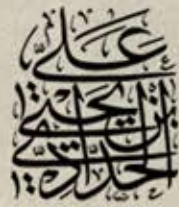 علي
بن يحيى
الحدادي